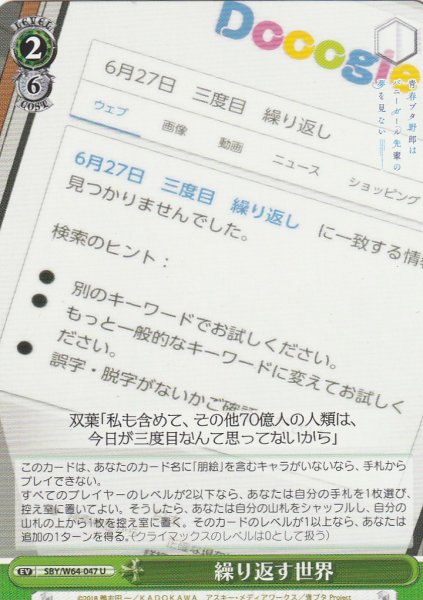 LEVEL
2
6
COST
Docogle
青春ブタ野郎は
バニーガール先輩の
夢を見ない
6月27日 三度目 繰り返し
ウェブ 画像 動画 ニュース ショッピング
6月27日 三度目 繰り返し に一致する情報
見つかりませんでした。
検索のヒント:
● 別のキーワードでお試しください。
● もっと一般的なキーワードに変えてお試しく
ださい。
● 誤字・脱字がないかご確認
双葉「私も含めて、その他70億人の人類は、
今日が三度目なんて思ってないから」
このカードは、あなたのカード名に「朋絵」を含むキャラがいないなら、手札から
プレイできない。
すべてのプレイヤーのレベルが2以下なら、あなたは自分の手札を1枚選び、
控え室に置いてよい。そうしたら、あなたは自分の山札をシャッフルし、自分の
山札の上から1枚を控え室に置く。そのカードのレベルが1以上なら、あなたは
追加の1ターンを得る。(クライマックスのレベルは0として扱う)
EV SBY/W64-047 U
繰り返す世界
©2018 鴨志田 一/KADOKAWA アスキー・メディアワークス/青ブタ Project